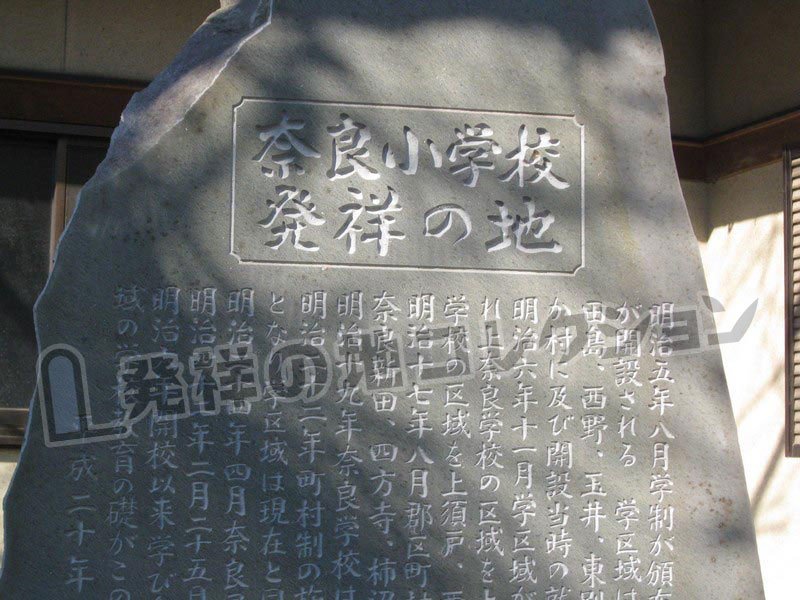 奈良小学校
発祥の地
明治五年八月学制が頒布
が開設される 学区域は
田島、西野、玉井、東別
か村に及び開設当時の就
明治六年十一月学区域が
れ上奈良学校の区域を上
学校の区域を上須戸、
明治十七年八月郡区町村
奈良新田、四方寺、柿沼
明治十九年奈良学校は
明治二十二年町村制の施
となり学区域は現在と同
明治 四年四月奈良
明治 七年二月二十五日
明治 年開校以来学び
域の学校教育の礎がこの
平成二十年
発祥の地コレクション